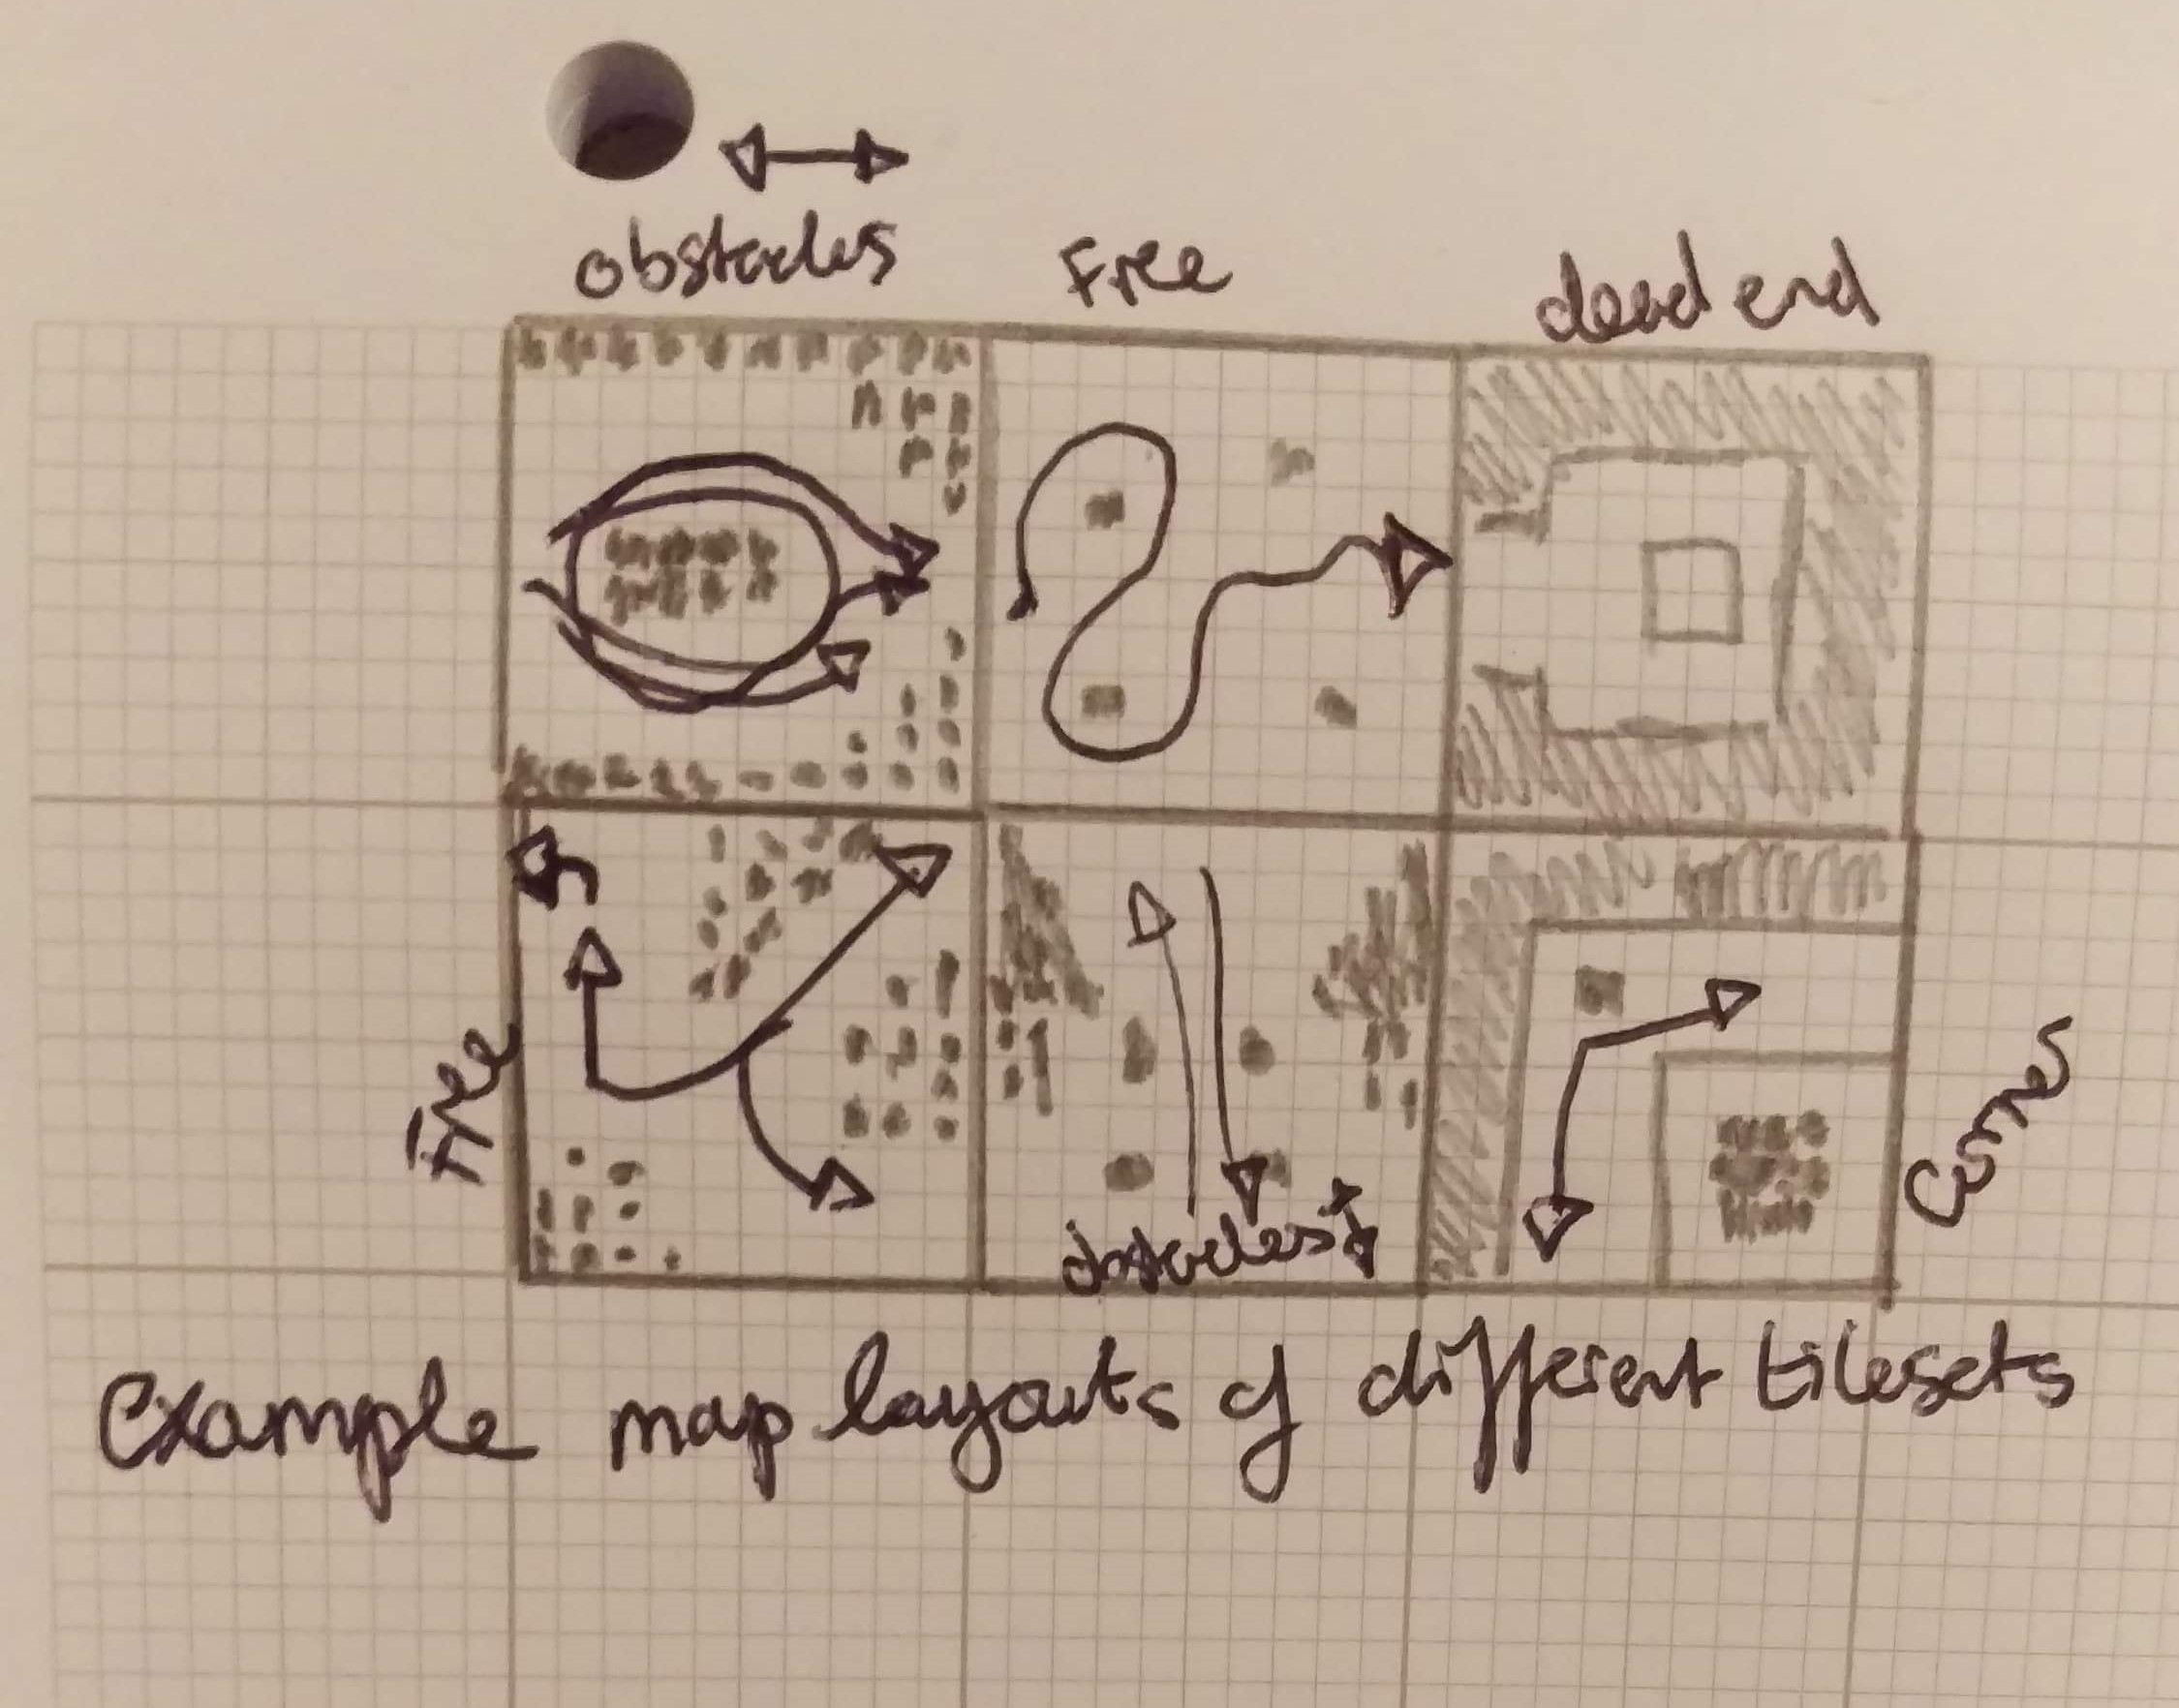 obstacles
Free
dead end
Free
obstacles
Corner
Example map layouts of different tilesets